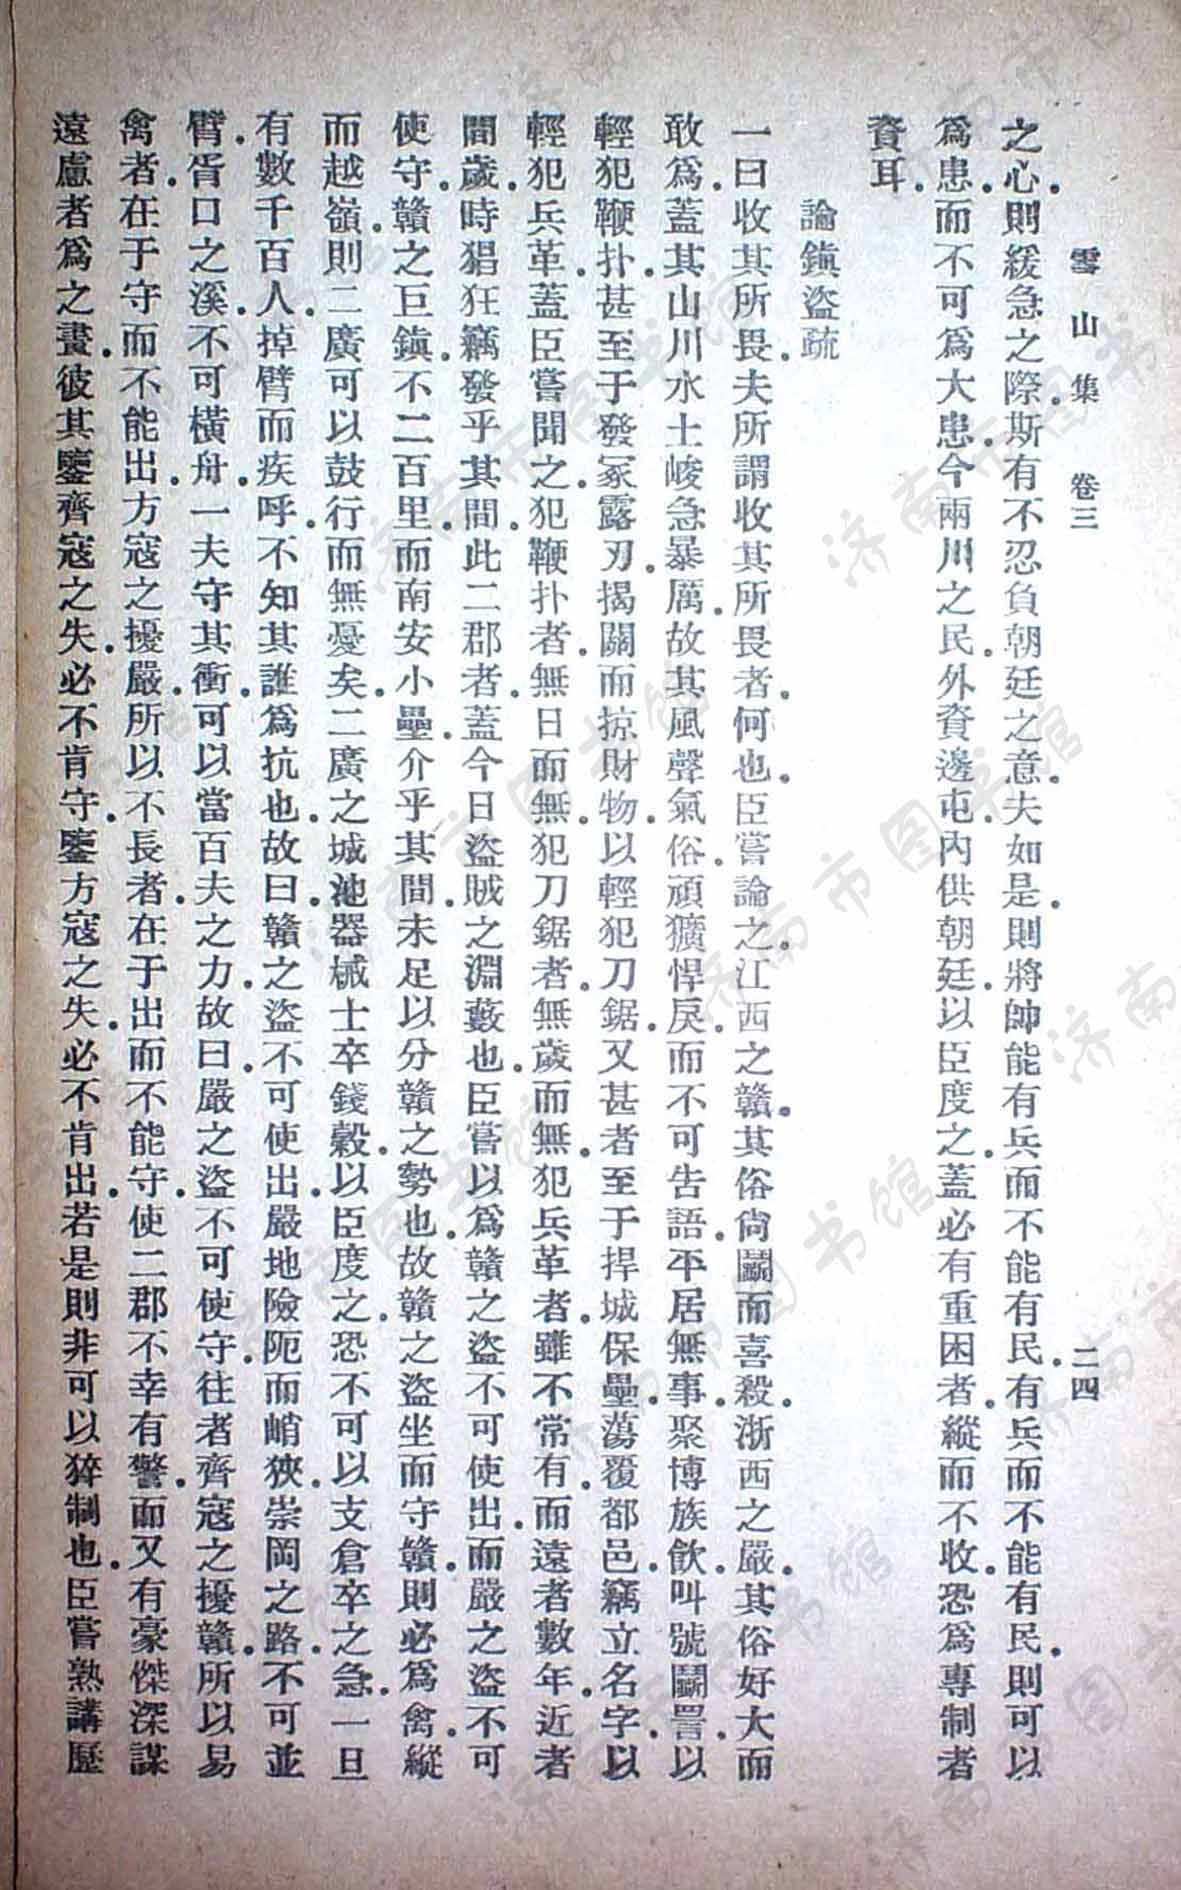 雪山集 卷三 二四
之心。則緩急之際。斯有不忍負朝廷之意。夫如是。則將帥能有兵而不能有民。有兵而不能有民。則可以
爲患。而不可爲大患。今兩川之民。外資邊屯。內供朝廷。以臣度之。蓋必有重困者。縱而不收。恐爲專制者
資耳。
論鎭盜疏
一曰收其所畏。夫所謂收其所畏者。何也。臣嘗論之。江西之贛。其俗尙鬭而喜殺。浙西之嚴。其俗好大而
敢爲。蓋其山川水土峻急暴厲。故其風聲氣俗。頑獷悍戾。而不可告語。平居無事。聚博族飮。叫號鬭詈。以
輕犯鞭扑。甚至于發冢露刃。揭關而掠財物。以輕犯刀鋸。又甚者至于捍城保壘。蕩覆都邑。竊立名字。以
輕犯兵革。蓋臣嘗聞之。犯鞭扑者。無日而無。犯刀鋸者。無歲而無。犯兵革者。雖不常有。而遠者數年。近者
間歲。時猖狂竊發乎其間。此二郡者。蓋今日盜賊之淵藪也。臣嘗以爲贛之盜不可使出。而嚴之盜不可
使守。贛之巨鎭。不二百里。而南安小壘。介乎其間。未足以分贛之勢也。故贛之盜坐而守贛。則必爲禽。縱
而越嶺。則二廣可以鼓行而無憂矣。二廣之城池器械士卒錢穀。以臣度之。恐不可以支倉卒之急。一旦
有數千百人。掉臂而疾呼。不知其誰爲抗也。故曰贛之盜不可使出。嚴地險阨而峭狹。崇岡之路。不可並
臂。胥口之溪。不可橫舟。一夫守其衝。可以當百夫之力。故曰嚴之盜不可使守。往者齊寇之擾贛。所以易
禽者。在于守而不能出。方寇之擾嚴。所以不長者。在于出而不能守。使二郡不幸有警。而又有豪傑深謀
遠慮者爲之畫。彼其鑒齊寇之失。必不肯守。鑒方寇之失。必不肯出。若是則非可以猝制也。臣嘗熟講歷